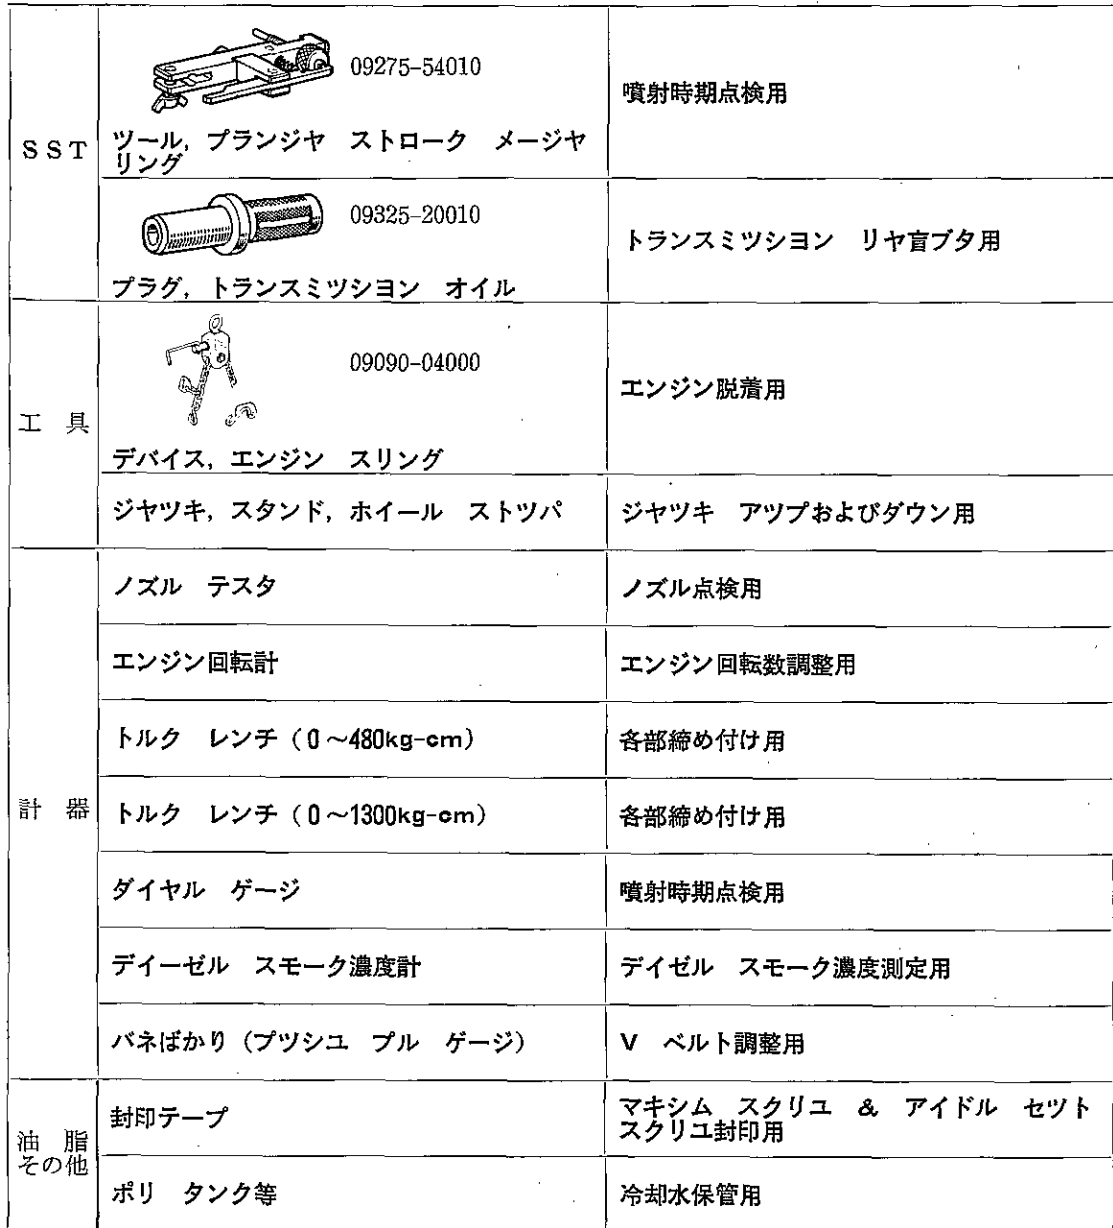 SST
09275-54010
ツール，プランジヤ　ストローク　メージヤ
リング
噴射時期点検用
09325-20010
プラグ，トランスミツシヨン　オイル
トランスミツシヨン　リヤ盲ブタ用
工　具
09090-04000
デバイス，エンジン　スリング
エンジン脱着用
ジヤツキ，スタンド，ホイール　ストツパ
ジヤツキ　アツプおよびダウン用
計　器
ノズル　テスタ
ノズル点検用
エンジン回転計
エンジン回転数調整用
トルク　レンチ（0～480kg-cm）
各部締め付け用
トルク　レンチ（0～1300kg-cm）
各部締め付け用
ダイヤル　ゲージ
噴射時期点検用
デイーゼル　スモーク濃度計
デイゼル　スモーク濃度測定用
バネばかり（プツシユ　プル　ゲージ）
V　ベルト調整用
油　脂
その他
封印テープ
マキシム　スクリユ　&　アイドル　セツト
スクリユ封印用
ポリ　タンク等
冷却水保管用